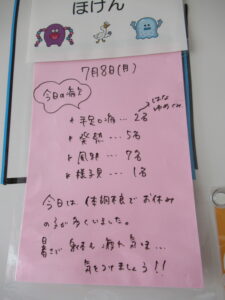 ほけん
7月8日(月)
今日の病気
* 手足口病…2名
はな
ゆめぐみ
* 発熱…5名
* 風邪…7名
* 様子見…1名
今日は、体調不良でお休み
の子が多くいました。
暑さで身体も疲れ気味…
気をつけましょう!!